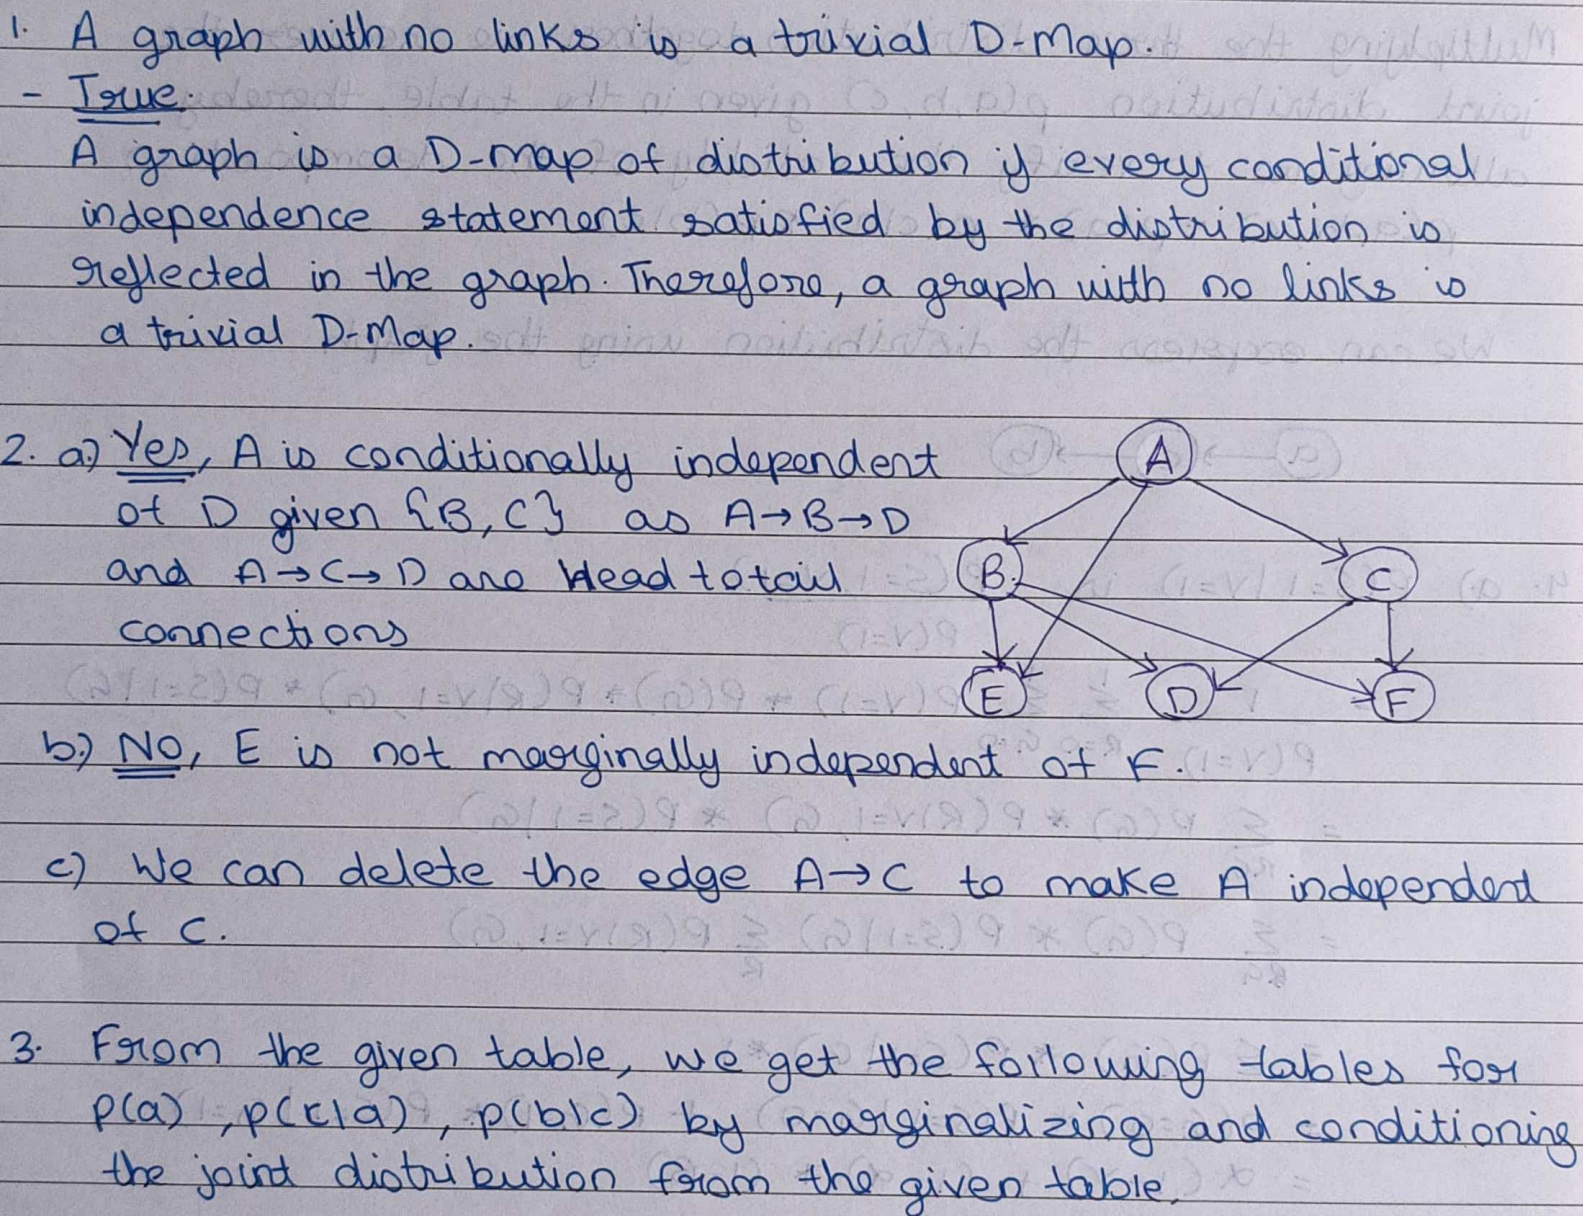 1. A graph with no links is a trivial D-Map.
- True.
A graph is a D-map of distribution if every conditional
independence statement satisfied by the distribution is
reflected in the graph. Therefore, a graph with no links is
a trivial D-Map.
2. a) Yes, A is conditionally independent
of D given {B, C} as A→B→D
and A→C→D are Head to tail
connections
A
B
C
E
D
F
b) NO, E is not marginally independent of F.
c) We can delete the edge A→C to make A independent
of C.
3. From the given table, we get the following tables for
p(a), p(c|a), p(b|c) by marginalizing and conditioning
the joint distribution from the given table.